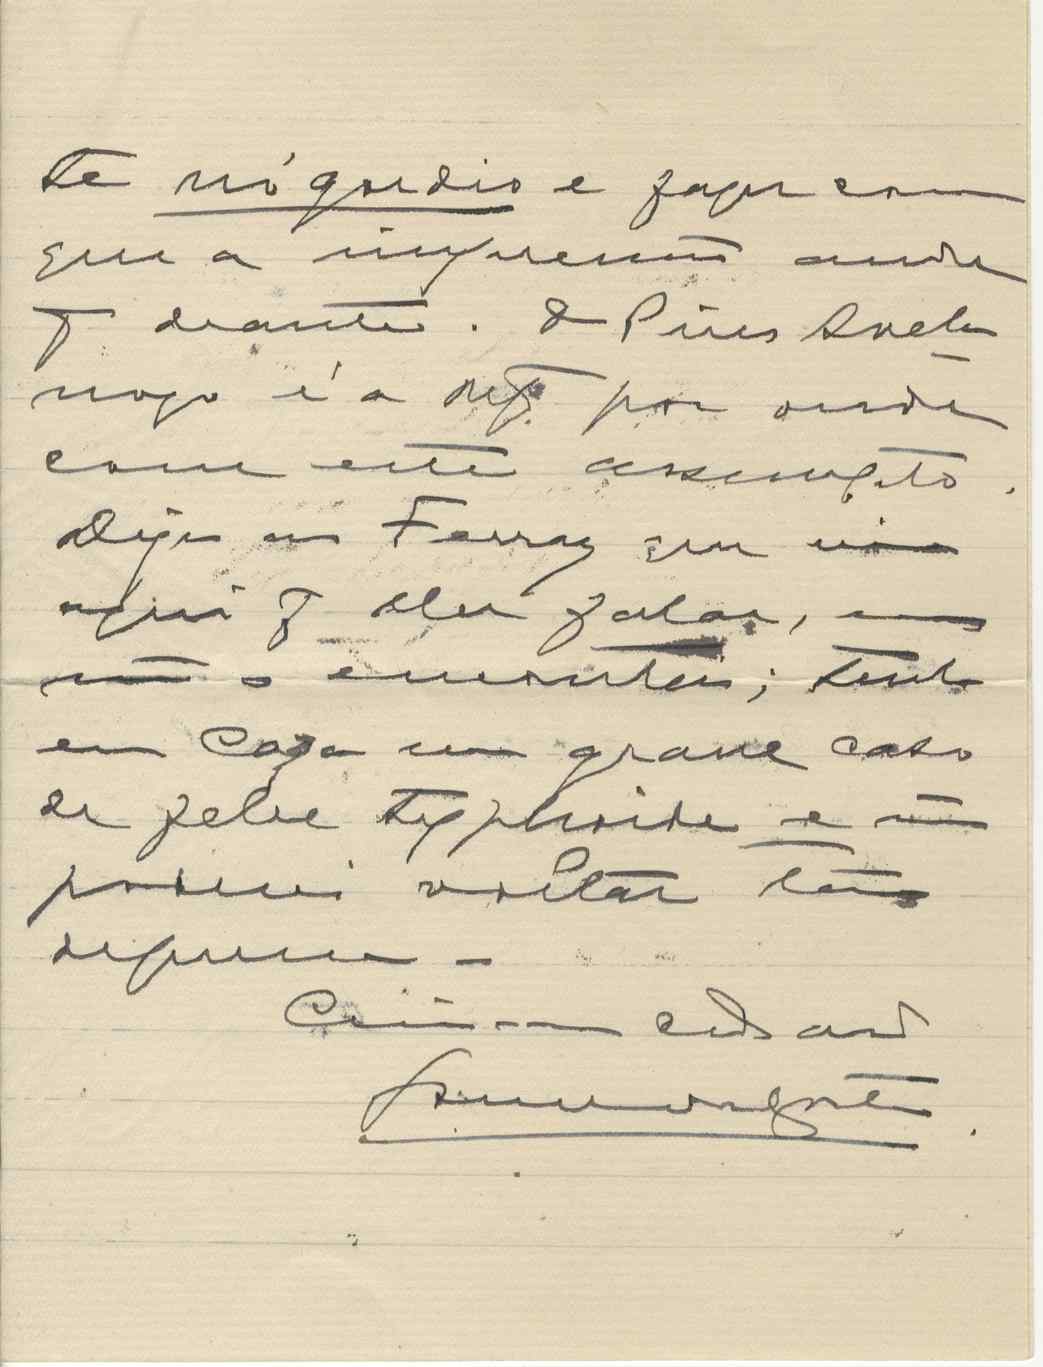 te nó gordio e fazer com
que a impressão ande
p deante. O Pires Avela
nogo é a rep. por onde
corre este assumpto.
Dize ao Ferraz que vim
aqui p lhe falar, mas
não o encontrei; tenho
em Caza um grave caso
de febre typhoide e não
poderei voltar tão
depressa -
Criado